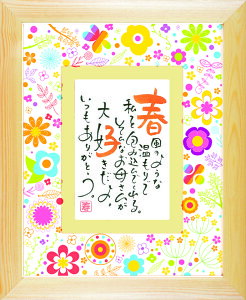 春風のような
温もりで
私を包み込んでくれる。
そんなお母さんが
大好きだよ。
いつもありがとう